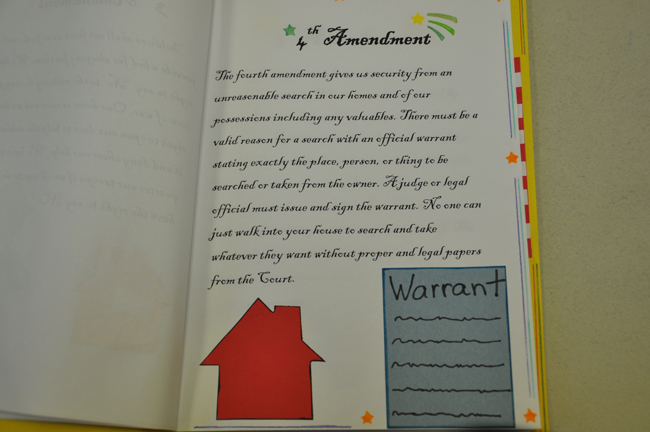 4th Amendment
The fourth amendment gives us security from an
unreasonable search in our homes and of our
possessions including any valuables. There must be a
valid reason for a search with an official warrant
stating exactly the place, person, or thing to be
searched or taken from the owner. A judge or legal
official must issue and sign the warrant. No one can
just walk into your house to search and take
whatever they want without proper and legal papers
from the Court.
Warrant